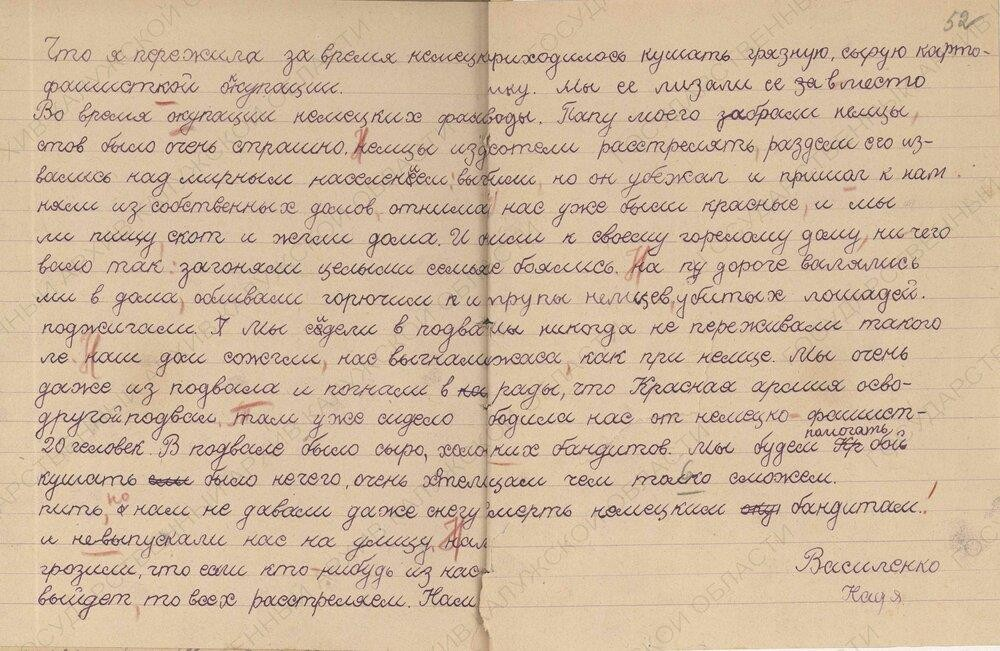 52
Что я пережила за время немецк
фашисткой окупации.
Во время окупации немецких фаш
стов было очень страшно. немцы изд
вались над мирным населенёем, выг
няли из собственных домов, отнима
ли пищу, скот и жгли дома. И
вало так: загоняли целыми семья
ми в дома, обливали горючим и
поджигали. Мы седели в подва
ле. Наш дом сожгли, нас выгнали
даже из подвала и погнали в
другой подвал. Там уже сидело
20 человек. В подвале было сыро, холо
кушать было нечего, очень хтели
пить, но нам не давали даже снегу
и не выпускали нас на улицу. Нам
грозили, что если кто-нибудь из нас
выйдет, то всех расстреляем. Нам
приходилось кушать грязную, сырую карто-
шку. Мы её лизали её за вместо
воды. Папу моего забрали немцы,
хотели расстрелять, раздели его из-
били, но он убежал и пришол к нам
нас уже были красные, и мы
шли к своему горелому дому, ни чего
не боялись. На пу дороге валялись
трупы немцев, убитых лошадей.
мы никогда не переживали такого
ужаса, как при немце. Мы очень
рады, что Красная армия осво-
бодила нас от немецко-фашист-
ких бандитов. Мы будем помогать бой
цам чем только сможем.
Смерть немецким бандитам!
Василенко
Надя